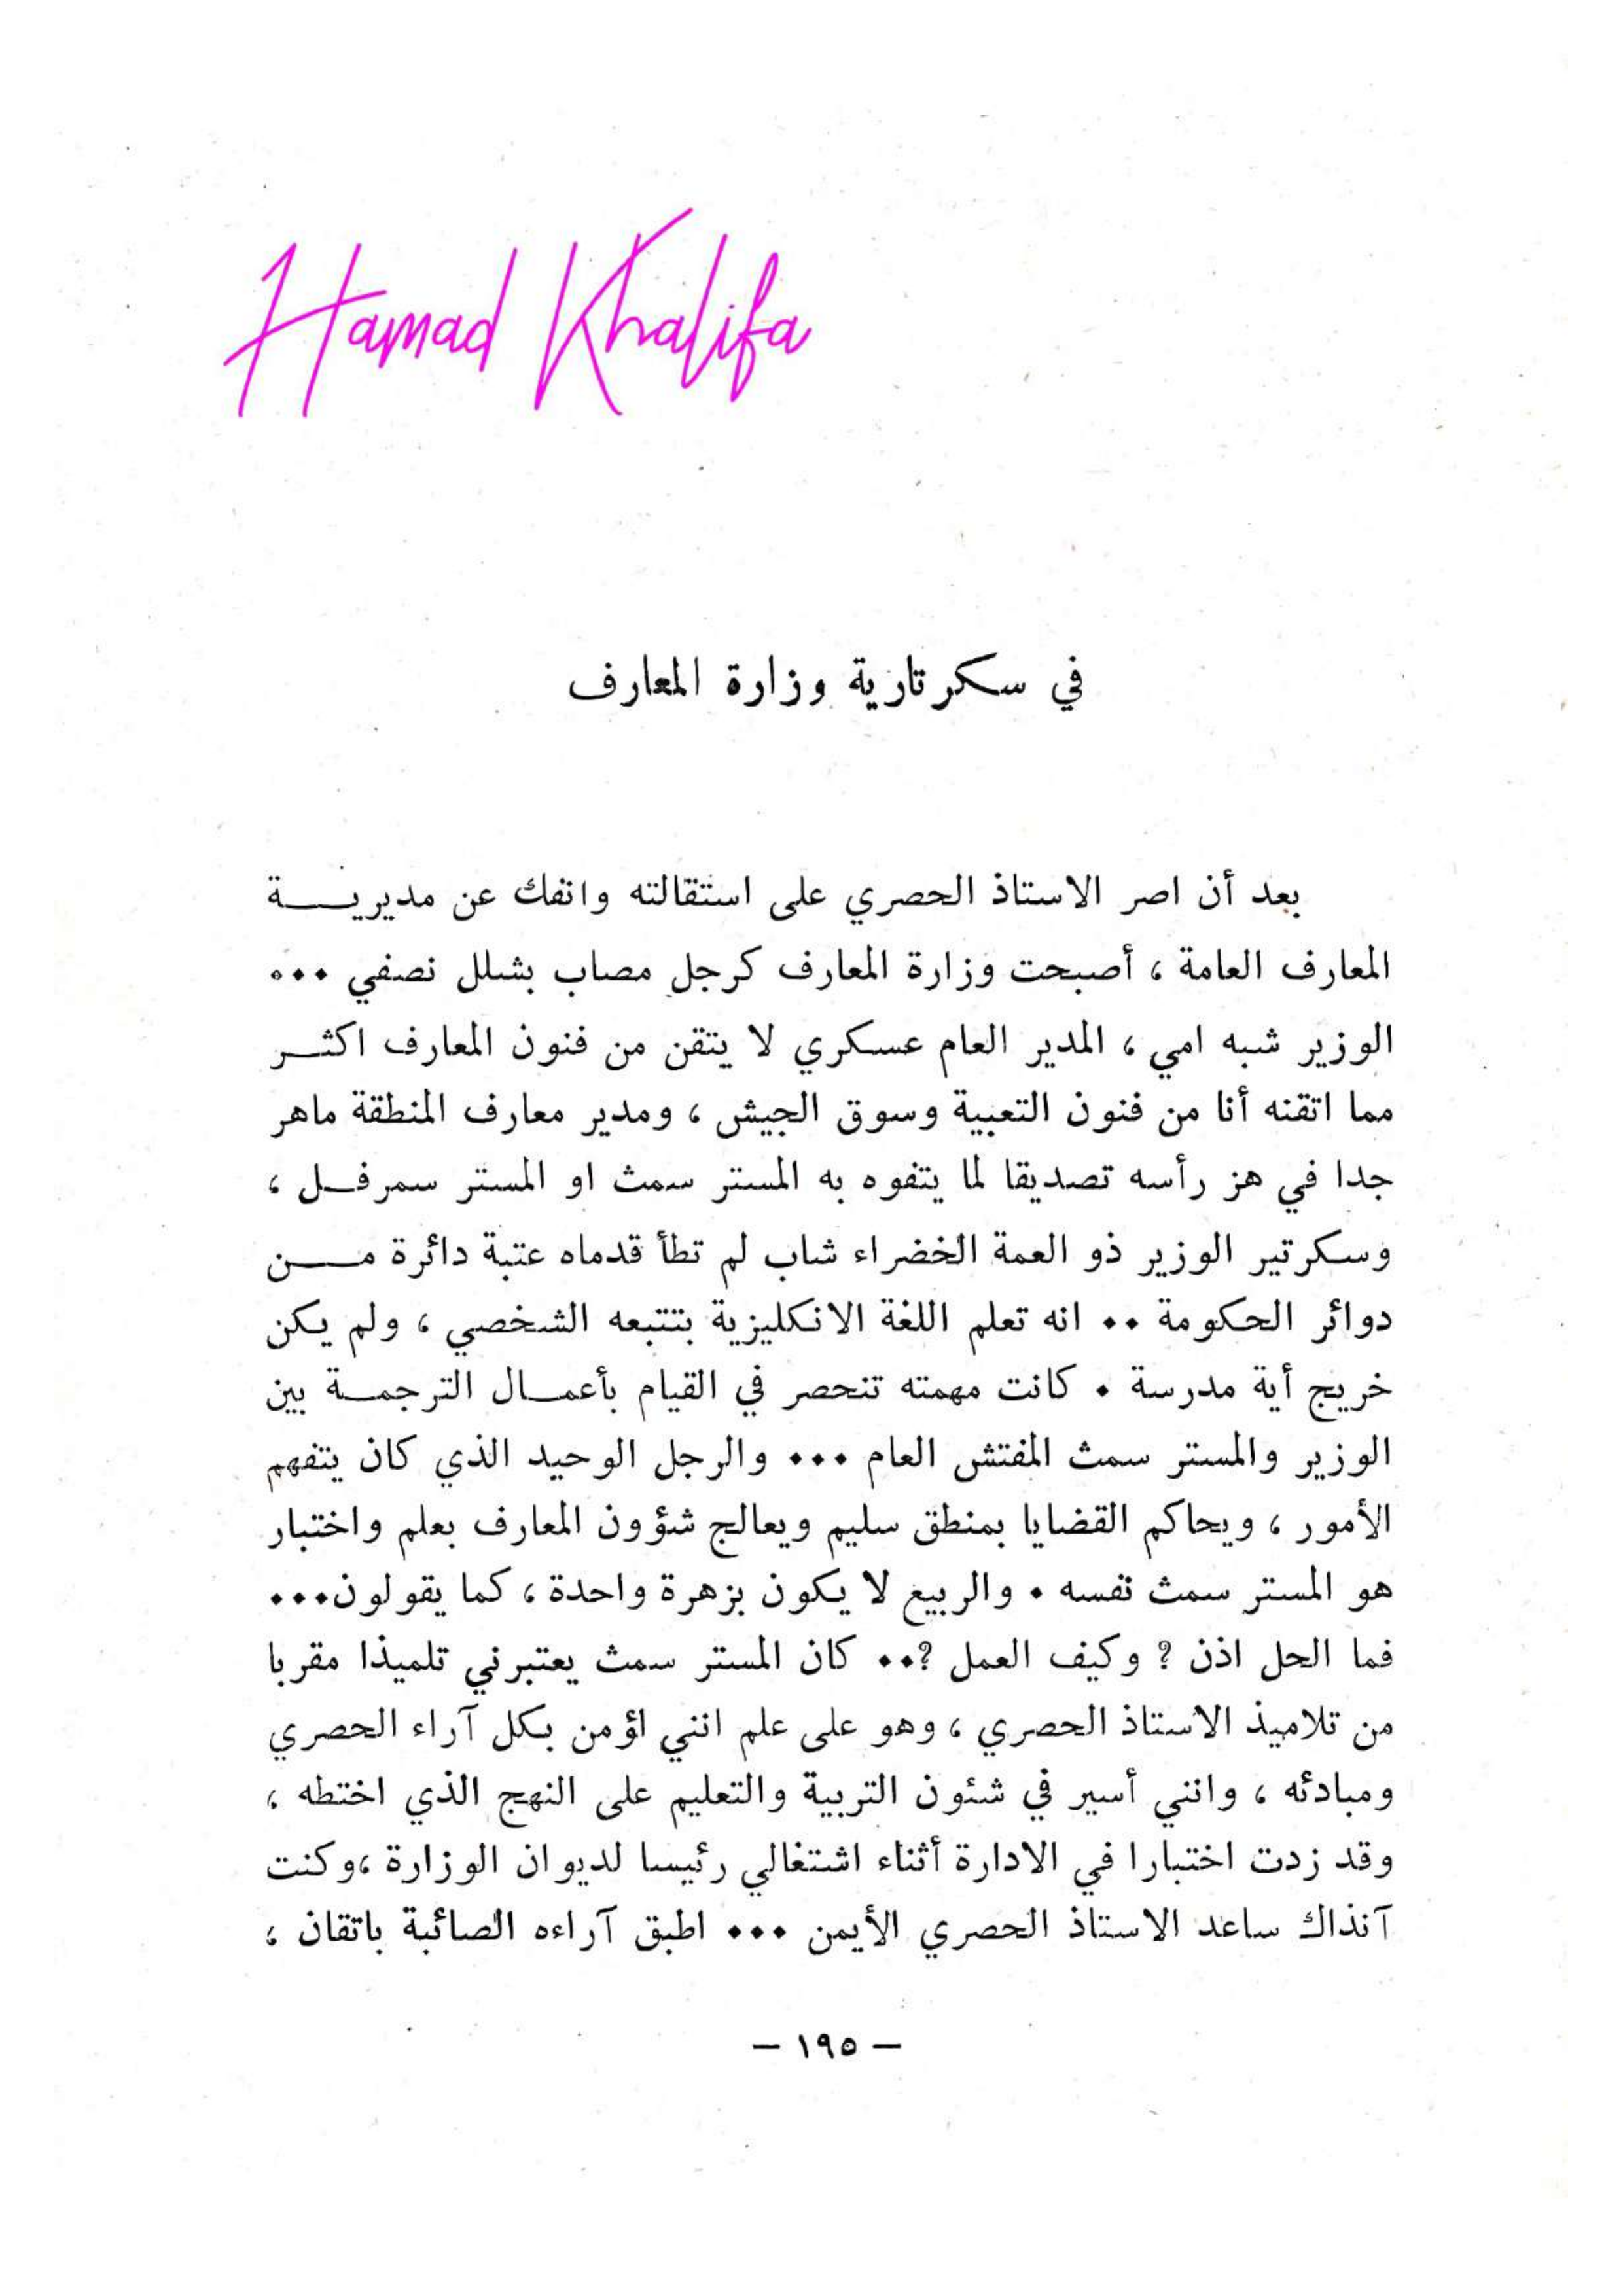 Hamad Khalifa
في سكرتارية وزارة المعارف
بعد أن اصر الاستاذ الحصري على استقالته وانفك عن مديريـــة
المعارف العامة ، أصبحت وزارة المعارف كرجل مصاب بشلل نصفي ...
الوزير شبه امي ، المدير العام عسكري لا يتقن من فنون المعارف اكثــر
مما اتقنه أنا من فنون التعبية وسوق الجيش ، ومدير معارف المنطقة ماهر
جدا في هز رأسه تصديقا لما يتفوه به المستر سمث او المستر سمرفــل ،
وسكرتير الوزير ذو العمة الخضراء شاب لم تطأ قدماه عتبة دائرة مـــن
دوائر الحكومة .. انه تعلم اللغة الانكليزية بتتبعه الشخصي ، ولم يكن
خريج أية مدرسة . كانت مهمته تنحصر في القيام بأعمــال الترجمــة بين
الوزير والمستر سمث المفتش العام ... والرجل الوحيد الذي كان يتفهم
الأمور ، ويحاكم القضايا بمنطق سليم ويعالج شؤون المعارف بعلم واختبار
هو المستر سمث نفسه . والربيع لا يكون بزهرة واحدة ، كما يقولون...
فما الحل اذن ? وكيف العمل ?.. كان المستر سمث يعتبرني تلميذا مقربا
من تلاميذ الاستاذ الحصري ، وهو على علم انني اؤمن بكل آراء الحصري
ومبادئه ، وانني أسير في شئون التربية والتعليم على النهج الذي اختطه ،
وقد زدت اختبارا في الادارة أثناء اشتغالي رئيسا لديوان الوزارة ،وكنت
آنذاك ساعد الاستاذ الحصري الأيمن ... اطبق آراءه الصائبة باتقان ،
— ١٩٥ —